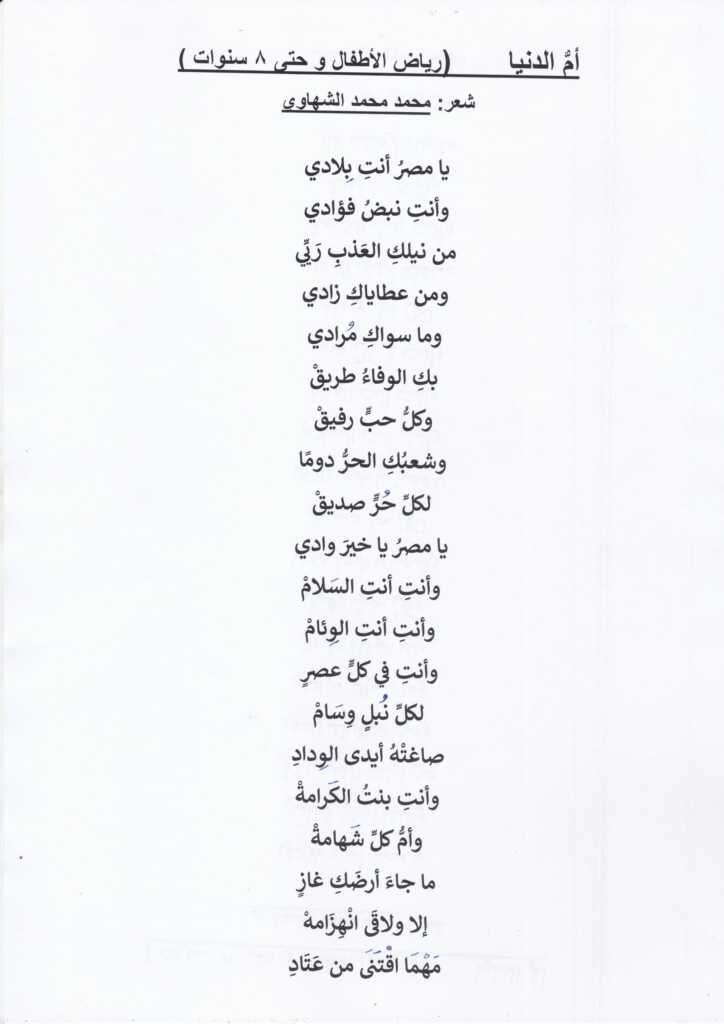 أمُّ الدنيا (رياض الأطفال و حتى ٨ سنوات )
شعر: محمد محمد الشهاوي
يا مصرُ أنتِ بِلادي
وأنتِ نبضُ فؤادي
من نيلكِ العَذبِ رَيِّي
ومن عطاياكِ زادي
وما سواكِ مُرادي
بكِ الوفاءُ طريقْ
وكلُّ حبٍّ رفيقْ
وشعبُكِ الحرُّ دومًا
لكلِّ حُرٍّ صديقْ
يا مصرُ يا خيرَ وادي
وأنتِ أنتِ السَلامْ
وأنتِ أنتِ الوِئامْ
وأنتِ في كلِّ عصرٍ
لكلِّ نُبلٍ وِسَامْ
صاغتْهُ أيدى الوِدادِ
وأنتِ بنتُ الكَرامةْ
وأمُّ كلِّ شَهامةْ
ما جاءَ أرضَكِ غازٍ
إلا ولاقَى انْهِزَامهْ
مَهْمَا اقْتَنَى من عَتَادِ